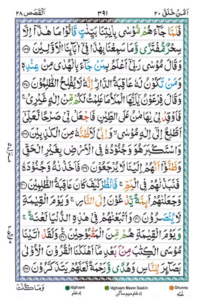 اَمَّنْ خَلَقَ ٢٠ ٣٩١ اَلْقَصَص ٢٨
فَلَمَّا جَآءَهُمْ مُّوْسٰى بِاٰيٰتِنَا بَيِّنٰتٍ قَالُوْا مَا هٰذَآ اِلَّا
سِحْرٌ مُّفْتَرًى وَّمَا سَمِعْنَا بِهٰذَا فِيْٓ اٰبَآئِنَا الْاَوَّلِيْنَ
وَقَالَ مُوْسٰى رَبِّيْٓ اَعْلَمُ بِمَنْ جَآءَ بِالْهُدٰى مِنْ عِنْدِهٖ
وَمَنْ تَكُوْنُ لَهٗ عَاقِبَةُ الدَّارِ اِنَّهٗ لَا يُفْلِحُ الظّٰلِمُوْنَ
وَقَالَ فِرْعَوْنُ يٰٓاَيُّهَا الْمَلَاُ مَا عَلِمْتُ لَكُمْ مِّنْ اِلٰهٍ غَيْرِيْ
فَاَوْقِدْ لِيْ يٰهَامٰنُ عَلَى الطِّيْنِ فَاجْعَلْ لِّيْ صَرْحًا لَّعَلِّيْٓ
اَطَّلِعُ اِلٰٓى اِلٰهِ مُوْسٰى وَاِنِّيْ لَاَظُنُّهٗ مِنَ الْكٰذِبِيْنَ
وَاسْتَكْبَرَ هُوَ وَجُنُوْدُهٗ فِي الْاَرْضِ بِغَيْرِ الْحَقِّ
وَظَنُّوْٓا اَنَّهُمْ اِلَيْنَا لَا يُرْجَعُوْنَ فَاَخَذْنٰهُ وَجُنُوْدَهٗ
فَنَبَذْنٰهُمْ فِي الْيَمِّ فَانْظُرْ كَيْفَ كَانَ عَاقِبَةُ الظّٰلِمِيْنَ
وَجَعَلْنٰهُمْ اَئِمَّةً يَّدْعُوْنَ اِلَى النَّارِ وَيَوْمَ الْقِيٰمَةِ
لَا يُنْصَرُوْنَ وَاَتْبَعْنٰهُمْ فِيْ هٰذِهِ الدُّنْيَا لَعْنَةً
وَيَوْمَ الْقِيٰمَةِ هُمْ مِّنَ الْمَقْبُوْحِيْنَ وَلَقَدْ اٰتَيْنَا
مُوْسَى الْكِتٰبَ مِنْۢ بَعْدِ مَآ اَهْلَكْنَا الْقُرُوْنَ الْاُوْلٰى
بَصَآئِرَ لِلنَّاسِ وَهُدًى وَّرَحْمَةً لَّعَلَّهُمْ يَتَذَكَّرُوْنَ
وَمَا كُنْتَ
Idghaam Idghaam Meem Saakin Ghunna